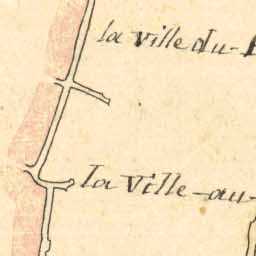 la ville du-
la ville-au-